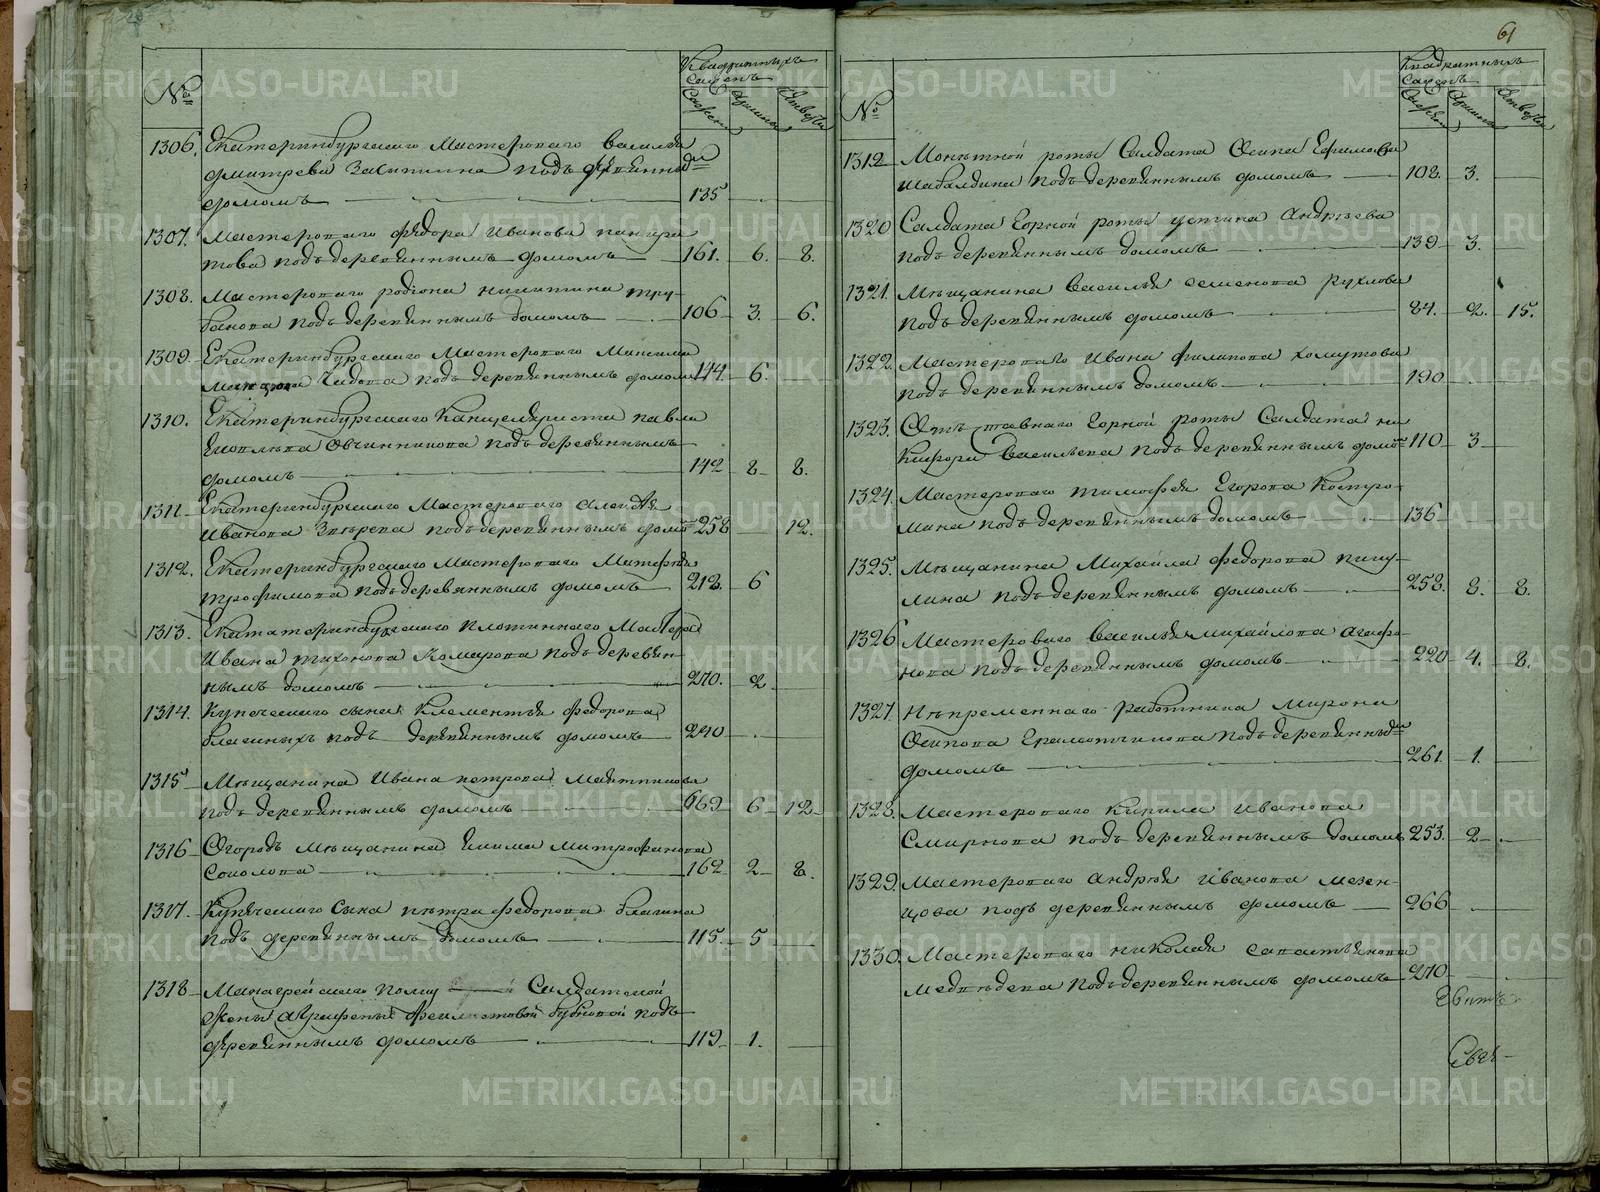 №
Квадратныхъ
саженъ
Сажени
Аршины
1306. Екатеринбургскаго Мастероваго Василья
Дмитрева подъ деревянны
домомъ 135
1307. Мастероваго Федора Иванова
това подъ деревяннымъ домомъ 161. 6. 8.
1308. Мастероваго родiона никитина тру-
банова подъ деревяннымъ домомъ 106 3. 6.
1309. Екатеринбургскаго Мастероваго Максима
подъ деревяннымъ домом 144. 6.
1310. Екатеринбургскаго Канцеляриста павла
Яковлева Овчинникова подъ деревяннымъ
домомъ 142 8 8.
1311 Екатеринбургскаго Мастероваго Алексѣя
Иванова Звѣрева подъ деревяннымъ домо 258 12.
1312. Екатеринбургскаго Мастероваго Матфея
трофимова подъ деревяннымъ домомъ 218. 6
1313. Плотиннаго Мастера
Ивана тихонова Комарова подъ деревян-
нымъ домомъ 270. 2
1314. Купеческаго сына Клементья федорова
благиныхъ подъ деревяннымъ домомъ 240
1315 Мѣщанина Ивана петрова
подъ деревяннымъ домомъ 169 6 12
1316 Огородъ мѣщанина Екима митрофанова
Соколова 162 2 8.
1317. Купеческаго Сына петра федорова благина
подъ деревяннымъ домомъ 115. 5
1318 полку Салдатской
жены Аграфены подъ
деревяннымъ домомъ 119 1.
61
№
Квадратныхъ
саженъ
Сажени
Аршины
1312 Монетной роты Салдата Осипа Ефимова
Шабалдина подъ деревяннымъ домомъ 108. 3.
1320 Салдата Горной роты устина Андреева
подъ деревяннымъ домомъ 139 3.
1321. Мѣщанина Василья семенова рухлова
подъ деревяннымъ домомъ 84. 2. 15.
1322. Мастероваго Ивана филипова хомутова
подъ деревяннымъ домомъ 190
1323. Отъ ставнаго Горной роты Салдата ни
кифора Васильева подъ деревяннымъ домо 110 3
1324. Мастероваго тимофея Егорова Костро-
мина подъ деревяннымъ домомъ 136
1325. Мѣщанина Михайла федорова пичу-
лина подъ деревяннымъ домомъ 258. 8. 8.
1326 Мастероваго Василья михайлова Агафо-
нова подъ деревяннымъ домомъ 220 4. 8.
1327. Непременнаго работника Мирона
Осипова подъ деревянны
домомъ 261. 1.
1328. Мастероваго Кирила Иванова
Смирнова подъ деревяннымъ домомъ 253. 2
1329. Мастероваго Андрея Иванова мезен-
цова подъ деревяннымъ домомъ 266
1330. Мастероваго николая савастьянова
медведева подъ деревяннымъ домомъ 270
METRIKI.GASO-URAL.RU